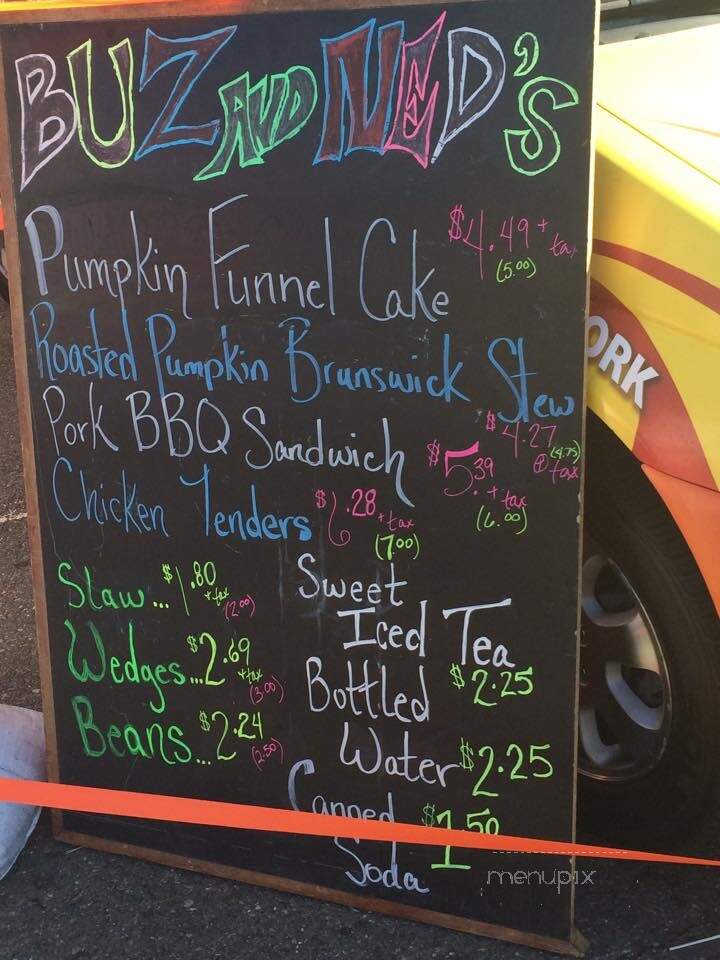 BUZ AND NED'S
Pumpkin Funnel Cake $4.49 + ta
(5.00)
Roasted Pumpkin Brunswick Stew
$4.27 (4.75)
@ tax
Pork BBQ Sandwich $5.39
+ tax
(6.00)
Chicken Tenders $6.28
+ tax
(7.00)
Slaw... $1.80
+ tax
(2.00)
Wedges...$2.69
+ tax
(3.00)
Beans...$2.24
(2.50)
Sweet
Iced Tea
$2.25
Bottled
Water $2.25
Canned $1.50
Soda
ORK
menupix